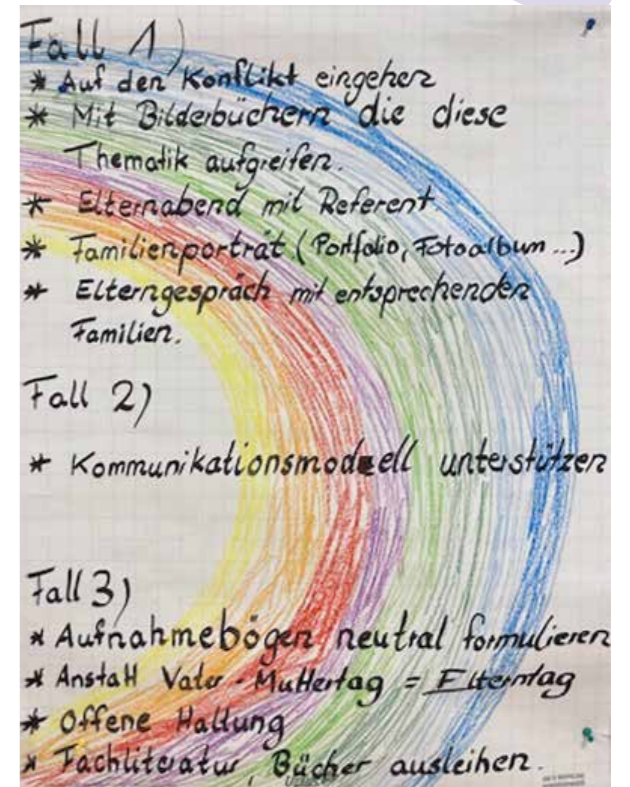 Fall 1)
* Auf den Konflikt eingehen
* Mit Bilderbüchern die diese
Thematik aufgreifen.
* Elternabend mit Referent.
* Familienporträt (Portfolio, Fotoalbum...)
* Elterngespräch mit entsprechenden
Familien.
Fall 2)
* Kommunikationsmodell unterstützen
Fall 3)
* Aufnahmebögen neutral formulieren
* Anstatt Vater - Muttertag = Elterntag
* Offene Haltung
* Fachliteratur, Bücher ausleihen.